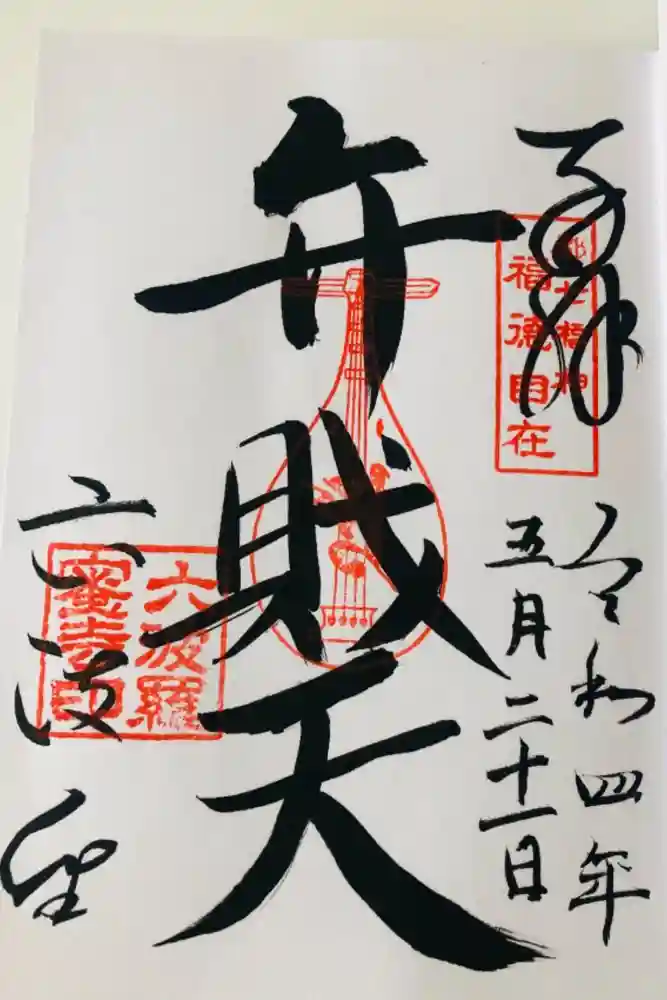 奉拝
都七福神
福徳自在
令和四年
五月二十一日
弁戝天
六波羅
六波羅
蜜寺印